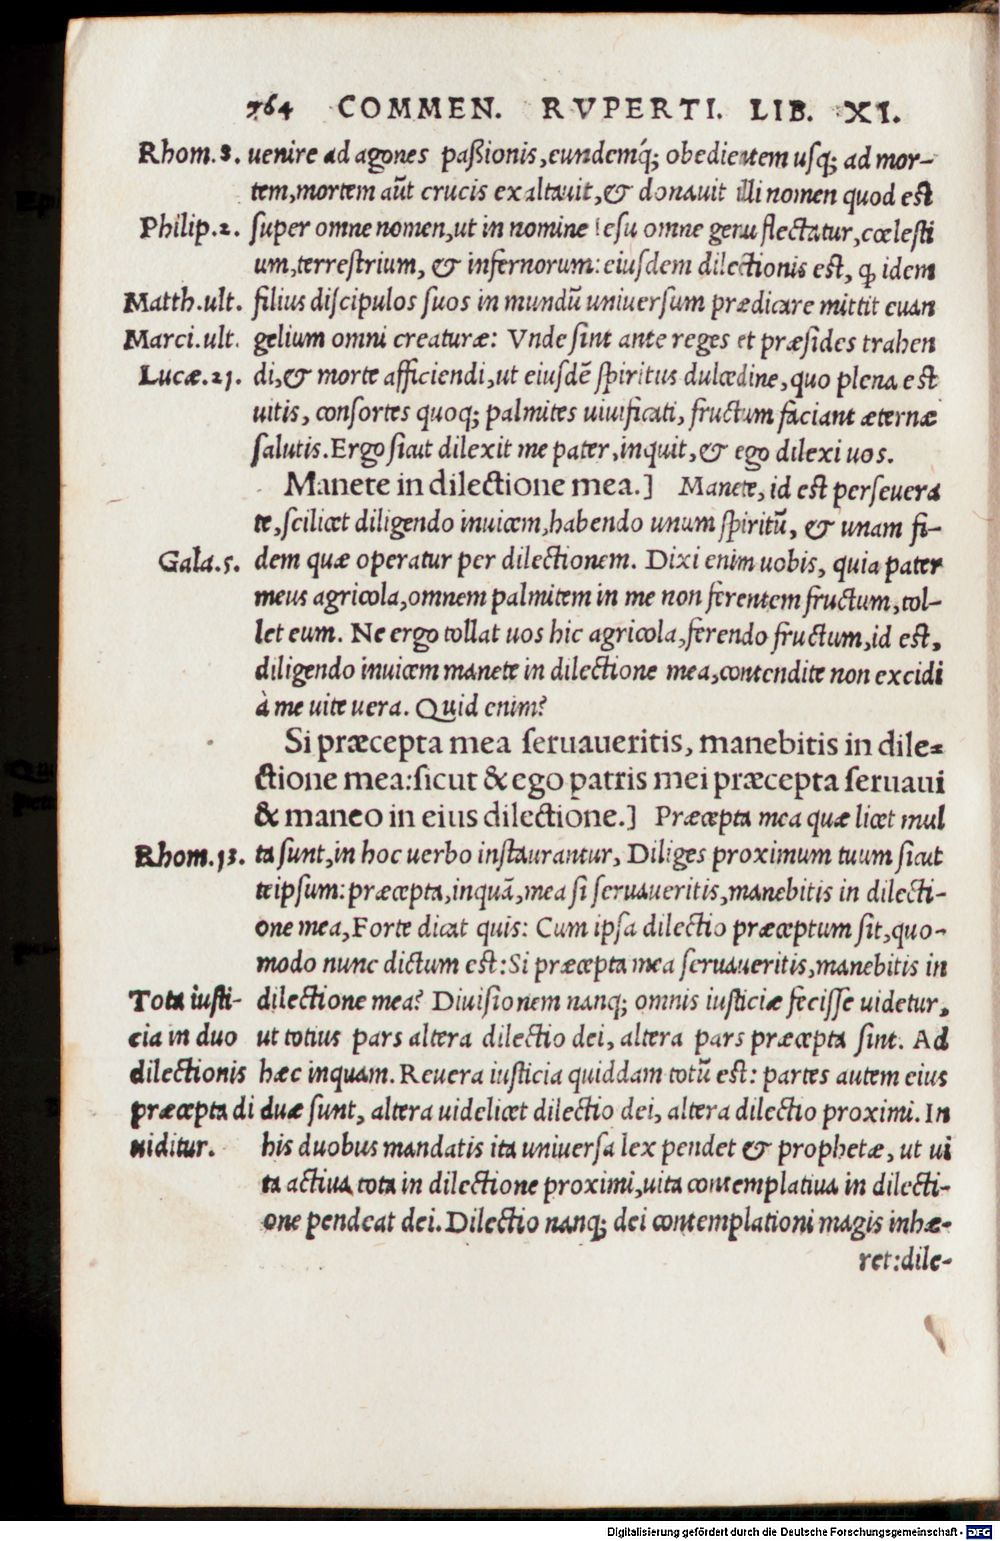 764 COMMEN. RVPERTI. LIB. XI.
Rhom.8. uenire ad agones paßionis, eundemq́; obedientem usq; ad mor-
tem, mortem aūt crucis exaltauit, & donauit illi nomen quod est
Philip.2. super omne nomen, ut in nomine Iesu omne genu flectatur, cœlesti
um, terrestrium, & infernorum: eiusdem dilectionis est, ꝙ idem
Matth.ult. filius discipulos suos in mundū uniuersum prædicare mittit euan
Marci.ult. gelium omni creaturæ: Vnde sint ante reges et præsides trahen
Lucæ.21. di, & morte afficiendi, ut eiusdē spiritus dulcedine, quo plena est
uitis, consortes quoq; palmites uiuificati, fructum faciant æternæ
salutis. Ergo sicut dilexit me pater, inquit, & ego dilexi uos.
Manete in dilectione mea.] Manete, id est perseuera
te, scilicet diligendo inuicem, habendo unum spiritū, & unam fi-
Gala.5. dem quæ operatur per dilectionem. Dixi enim uobis, quia pater
meus agricola, omnem palmitem in me non ferentem fructum, tol-
let eum. Ne ergo tollat uos hic agricola, ferendo fructum, id est,
diligendo inuicem manete in dilectione mea, contendite non excidi
à me uite uera. Quid enim?
Si præcepta mea seruaueritis, manebitis in dile-
ctione mea: sicut & ego patris mei præcepta seruaui
& maneo in eius dilectione.] Præcepta mea quæ licet mul
Rhom.13. ta sunt, in hoc uerbo instaurantur, Diliges proximum tuum sicut
teipsum: præcepta, inquā, mea si seruaueritis, manebitis in dilecti-
one mea, Forte dicat quis: Cum ipsa dilectio præceptum sit, quo-
modo nunc dictum est: Si præcepta mea seruaueritis, manebitis in
Tota iusti- dilectione mea? Diuisionem nanq; omnis iusticiæ fecisse uidetur,
cia in duo ut totius pars altera dilectio dei, altera pars præcepta sint. Ad
dilectionis hæc inquam. Reuera iusticia quiddam totū est: partes autem eius
præcepta di duæ sunt, altera uidelicet dilectio dei, altera dilectio proximi. In
uiditur. his duobus mandatis ita uniuersa lex pendet & prophetæ, ut ui
ta actiua tota in dilectione proximi, uita contemplatiua in dilecti-
one pendeat dei. Dilectio nanq; dei contemplationi magis inhæ-
ret: dile-
Digitalisierung gefördert durch die Deutsche Forschungsgemeinschaft - DFG